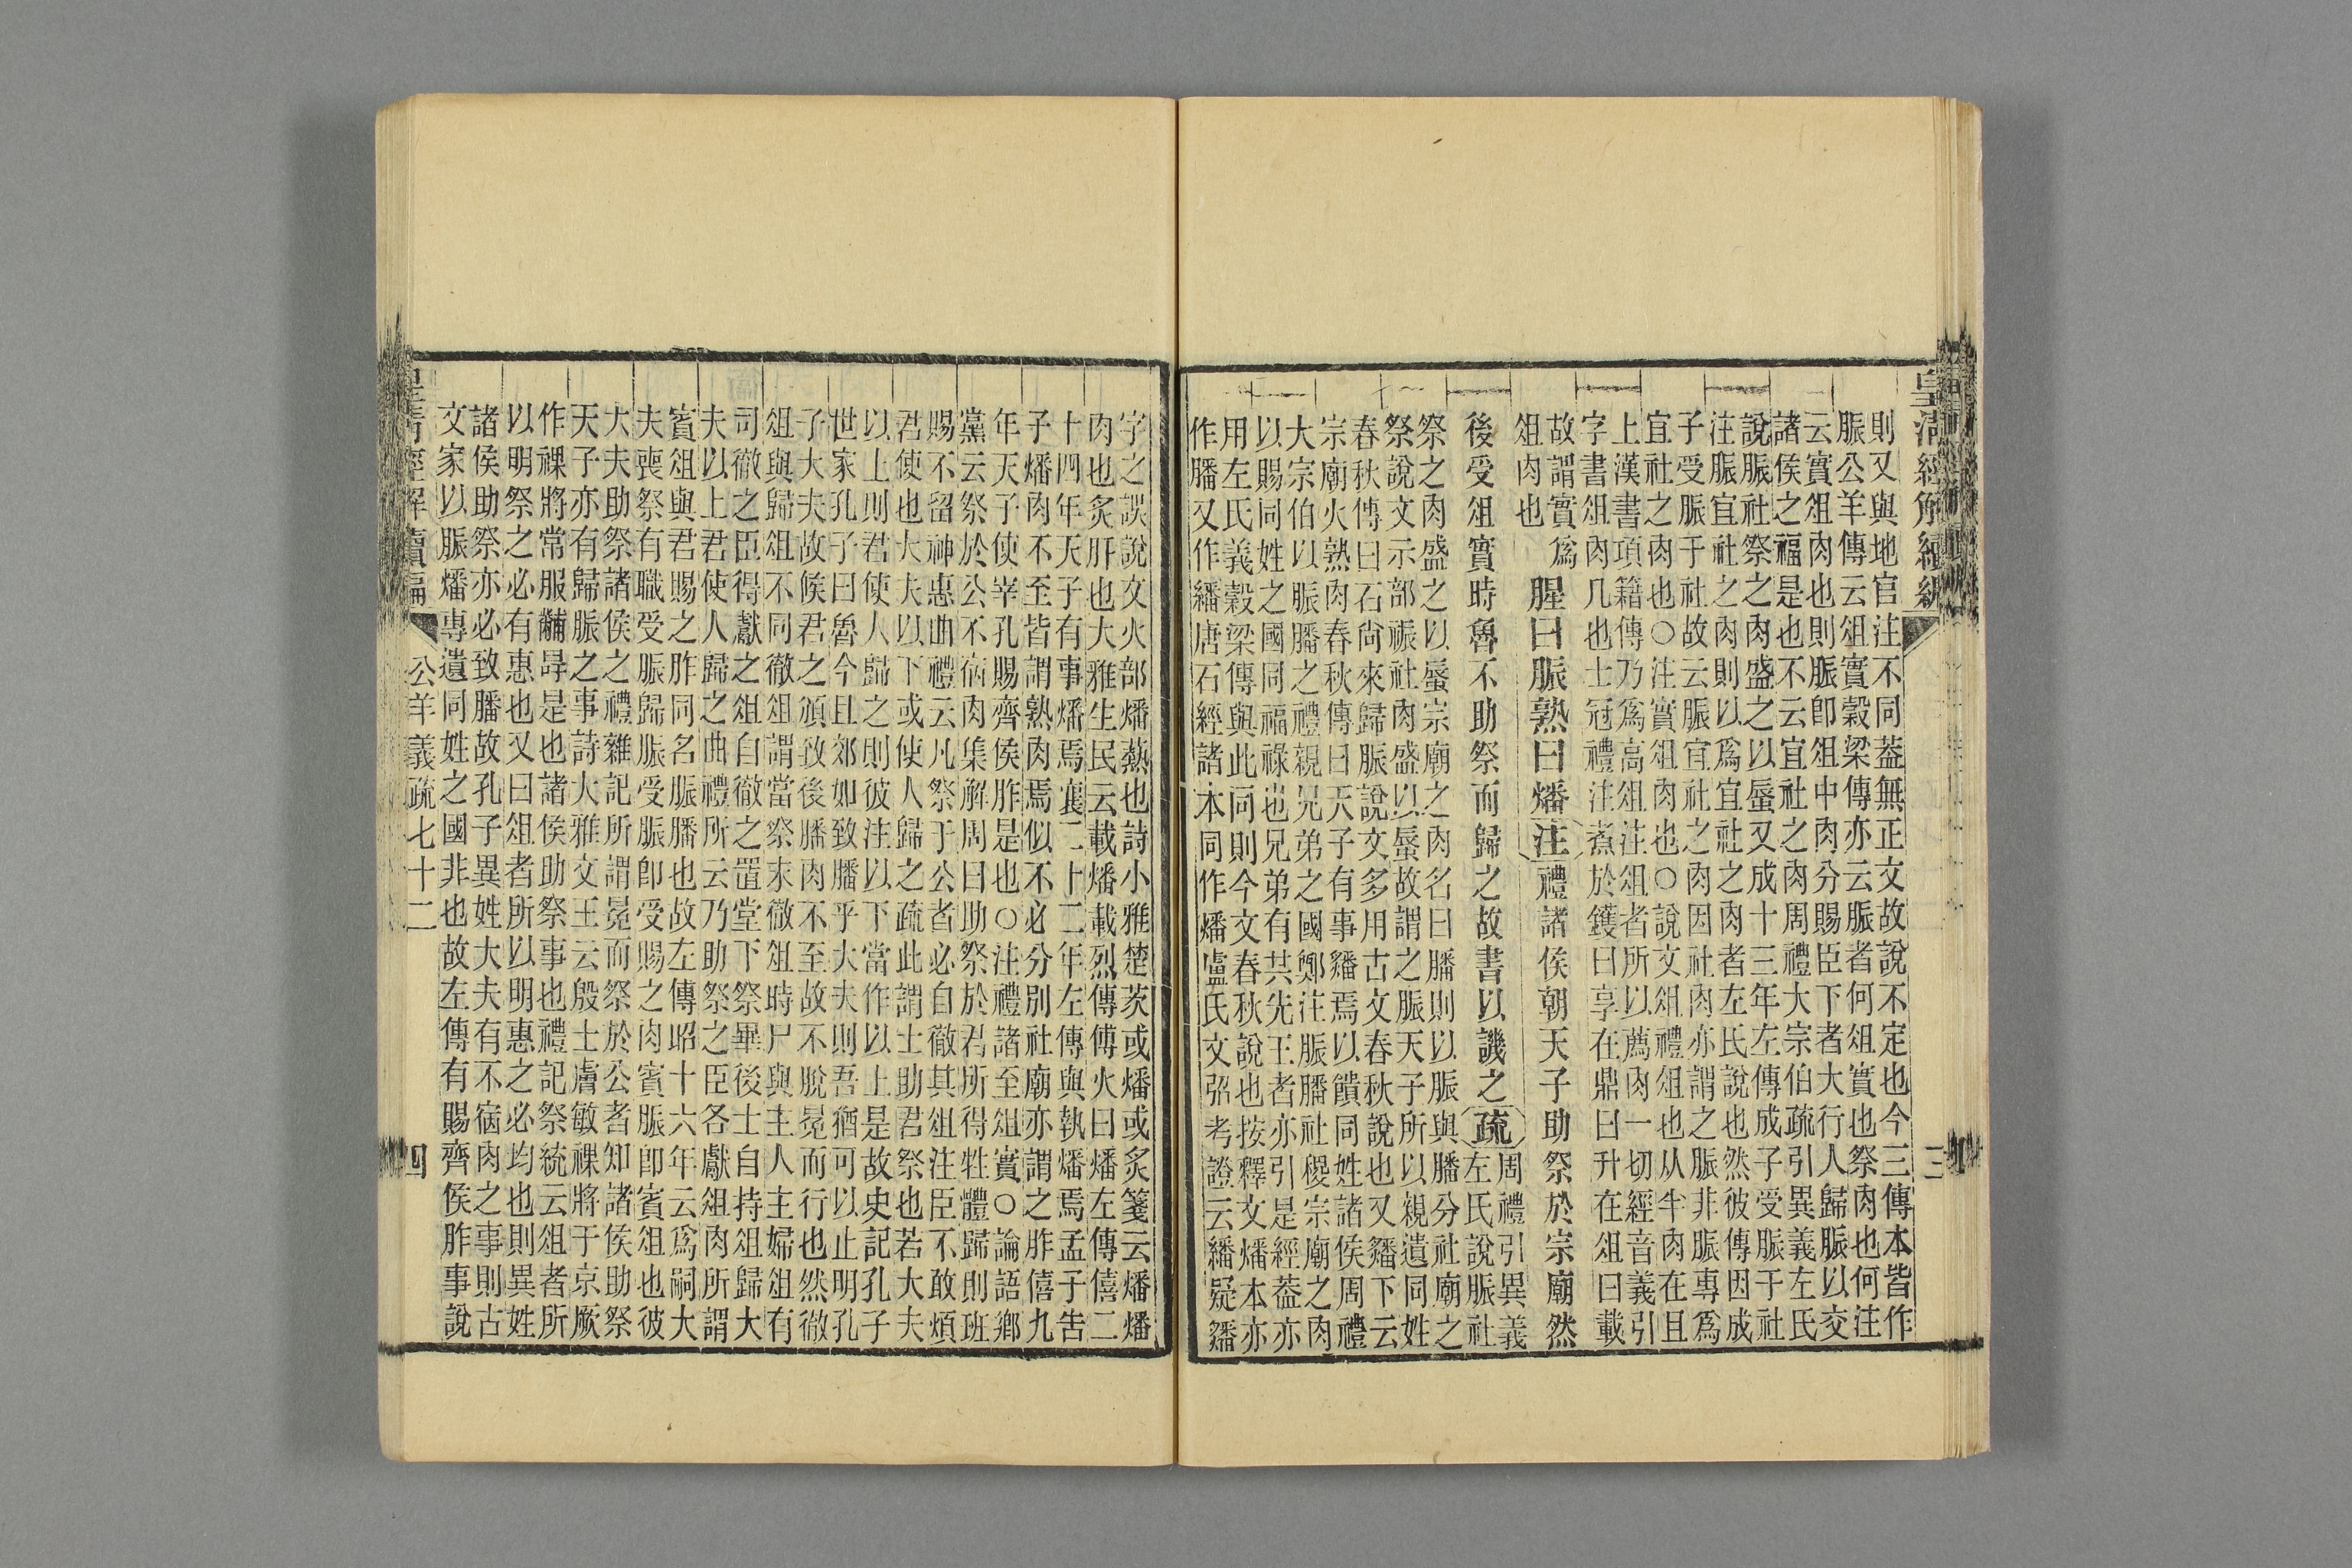 皇清經解續編
則又與地官注不同葢無正文故說不定也今三傳本皆作
脤公羊傳云俎實穀梁傳亦云脤者何俎實也祭肉也何注
云實俎肉也則脤卽俎中肉分賜臣下者大行人歸脤以交
諸侯之福是也不云宜社之肉周禮大宗伯疏引異義左氏
說脤社祭之肉盛之以蜃又成十三年左傳成子受脤于社
注脤宜社之肉則以爲宜社之肉者左氏說也然彼傳因成
子受脤于社故云脤宜社之肉因社肉亦謂之脤非脤專爲
宜社之肉也○注實俎肉也○說文俎禮俎也从半肉在且
上漢書項籍傳乃爲高俎注俎者所以薦肉一切經音義引
字書俎肉几也士冠禮注煮於鑊曰亯在鼎曰升在俎曰載
故謂實爲
俎肉也
腥曰脤熟曰燔注禮諸侯朝天子助祭於宗廟然
後受俎實時魯不助祭而歸之故書以譏之疏
周禮引異義
左氏說脤社
祭之肉盛之以蜃宗廟之肉名曰膰則以脤與膰分社廟之
祭說文示部祳社肉盛以蜃故謂之脤天子所以親遺同姓
春秋傳曰石尙來歸脤說文多用古文春秋說也又䊩下云
宗廟火熟肉春秋傳曰天子有事䊩焉以饋同姓諸侯周禮
大宗伯以脤膰之禮親兄弟之國鄭注脤膰社稷宗廟之肉
以賜同姓之國同福祿也兄弟有共先王者亦引是經葢亦
用左氏義穀梁傳與此同則今文春秋說也按釋文燔本亦
作膰又作䊩唐石經諸本同作燔盧氏文弨考證云䊩疑䊩
三
字之誤說文火部燔爇也詩小雅楚茨或燔或炙箋云燔燔
肉也炙肝也大雅生民云載燔載烈傳傅火曰燔左傳僖二
十四年天子有事燔焉襄二十二年左傳與執燔焉孟子告
子燔肉不至皆謂熟肉焉似不必分別社廟亦謂之胙僖九
年天子使宰孔賜齊侯胙是也○注禮諸至俎實○論語鄉
黨云祭於公不宿肉集解周曰助祭於君所得牲體歸則班
賜不留神惠曲禮云凡祭于公者必自徹其俎注臣不敢煩
君使也大夫以下或使人歸之疏此謂士助君祭也若大夫
以上則君使人歸之則彼注以下當作以上是故史記孔子
世家孔子曰魯今且郊如致膰乎大夫則吾猶可以止明孔
子大夫故候君之頒致後膰肉不至故不脫冕而行也然徹
俎與歸俎不同徹俎謂當祭末徹俎時尸與主人主婦俎有
司徹之臣得獻之俎自徹之置堂下祭畢後士自持俎歸大
夫以上君使人歸之曲禮所云乃助祭之臣各獻俎肉所謂
賓俎與君賜之胙同名脤膰也故左傳昭十六年云爲嗣大
夫喪祭有職受脤歸脤受脤卽受賜之肉賓脤卽賓俎也彼
大夫助祭諸侯之禮雜記所謂冕而祭於公者知諸侯助祭
天子亦有歸脤之事詩大雅文王云殷士膚敏祼將于京厥
作祼將常服黼冔是也諸侯助祭事也禮記祭統云俎者所
以明祭之必有惠也又曰俎者所以明惠之必均也則異姓
諸侯助祭亦必致膰故孔子異姓大夫有不宿肉之事則古
文家以脤燔專遺同姓之國非也故左傳有賜齊侯胙事說
皇清經解續編
公羊義疏七十二
四